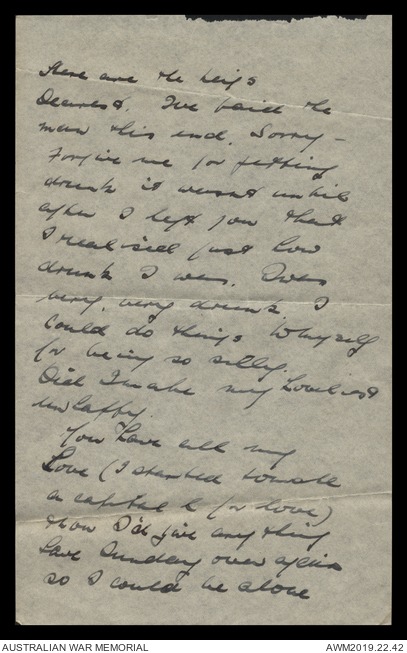 Here are the keys
Dearest. I've paid the
man this end. Sorry –
Forgive me for getting
drunk it wasnt until
after I left you that
I realised just how
drunk I was. I was
very, very drunk. I
could do things to myself
for being so silly.
Did I make my Loveliest
unhappy
You have all my
Love (I started to use
a capital L for love)
How I'd give anything
have Sunday over again
so I could be alone
AUSTRALIAN WAR MEMORIAL
AWM2019.22.42